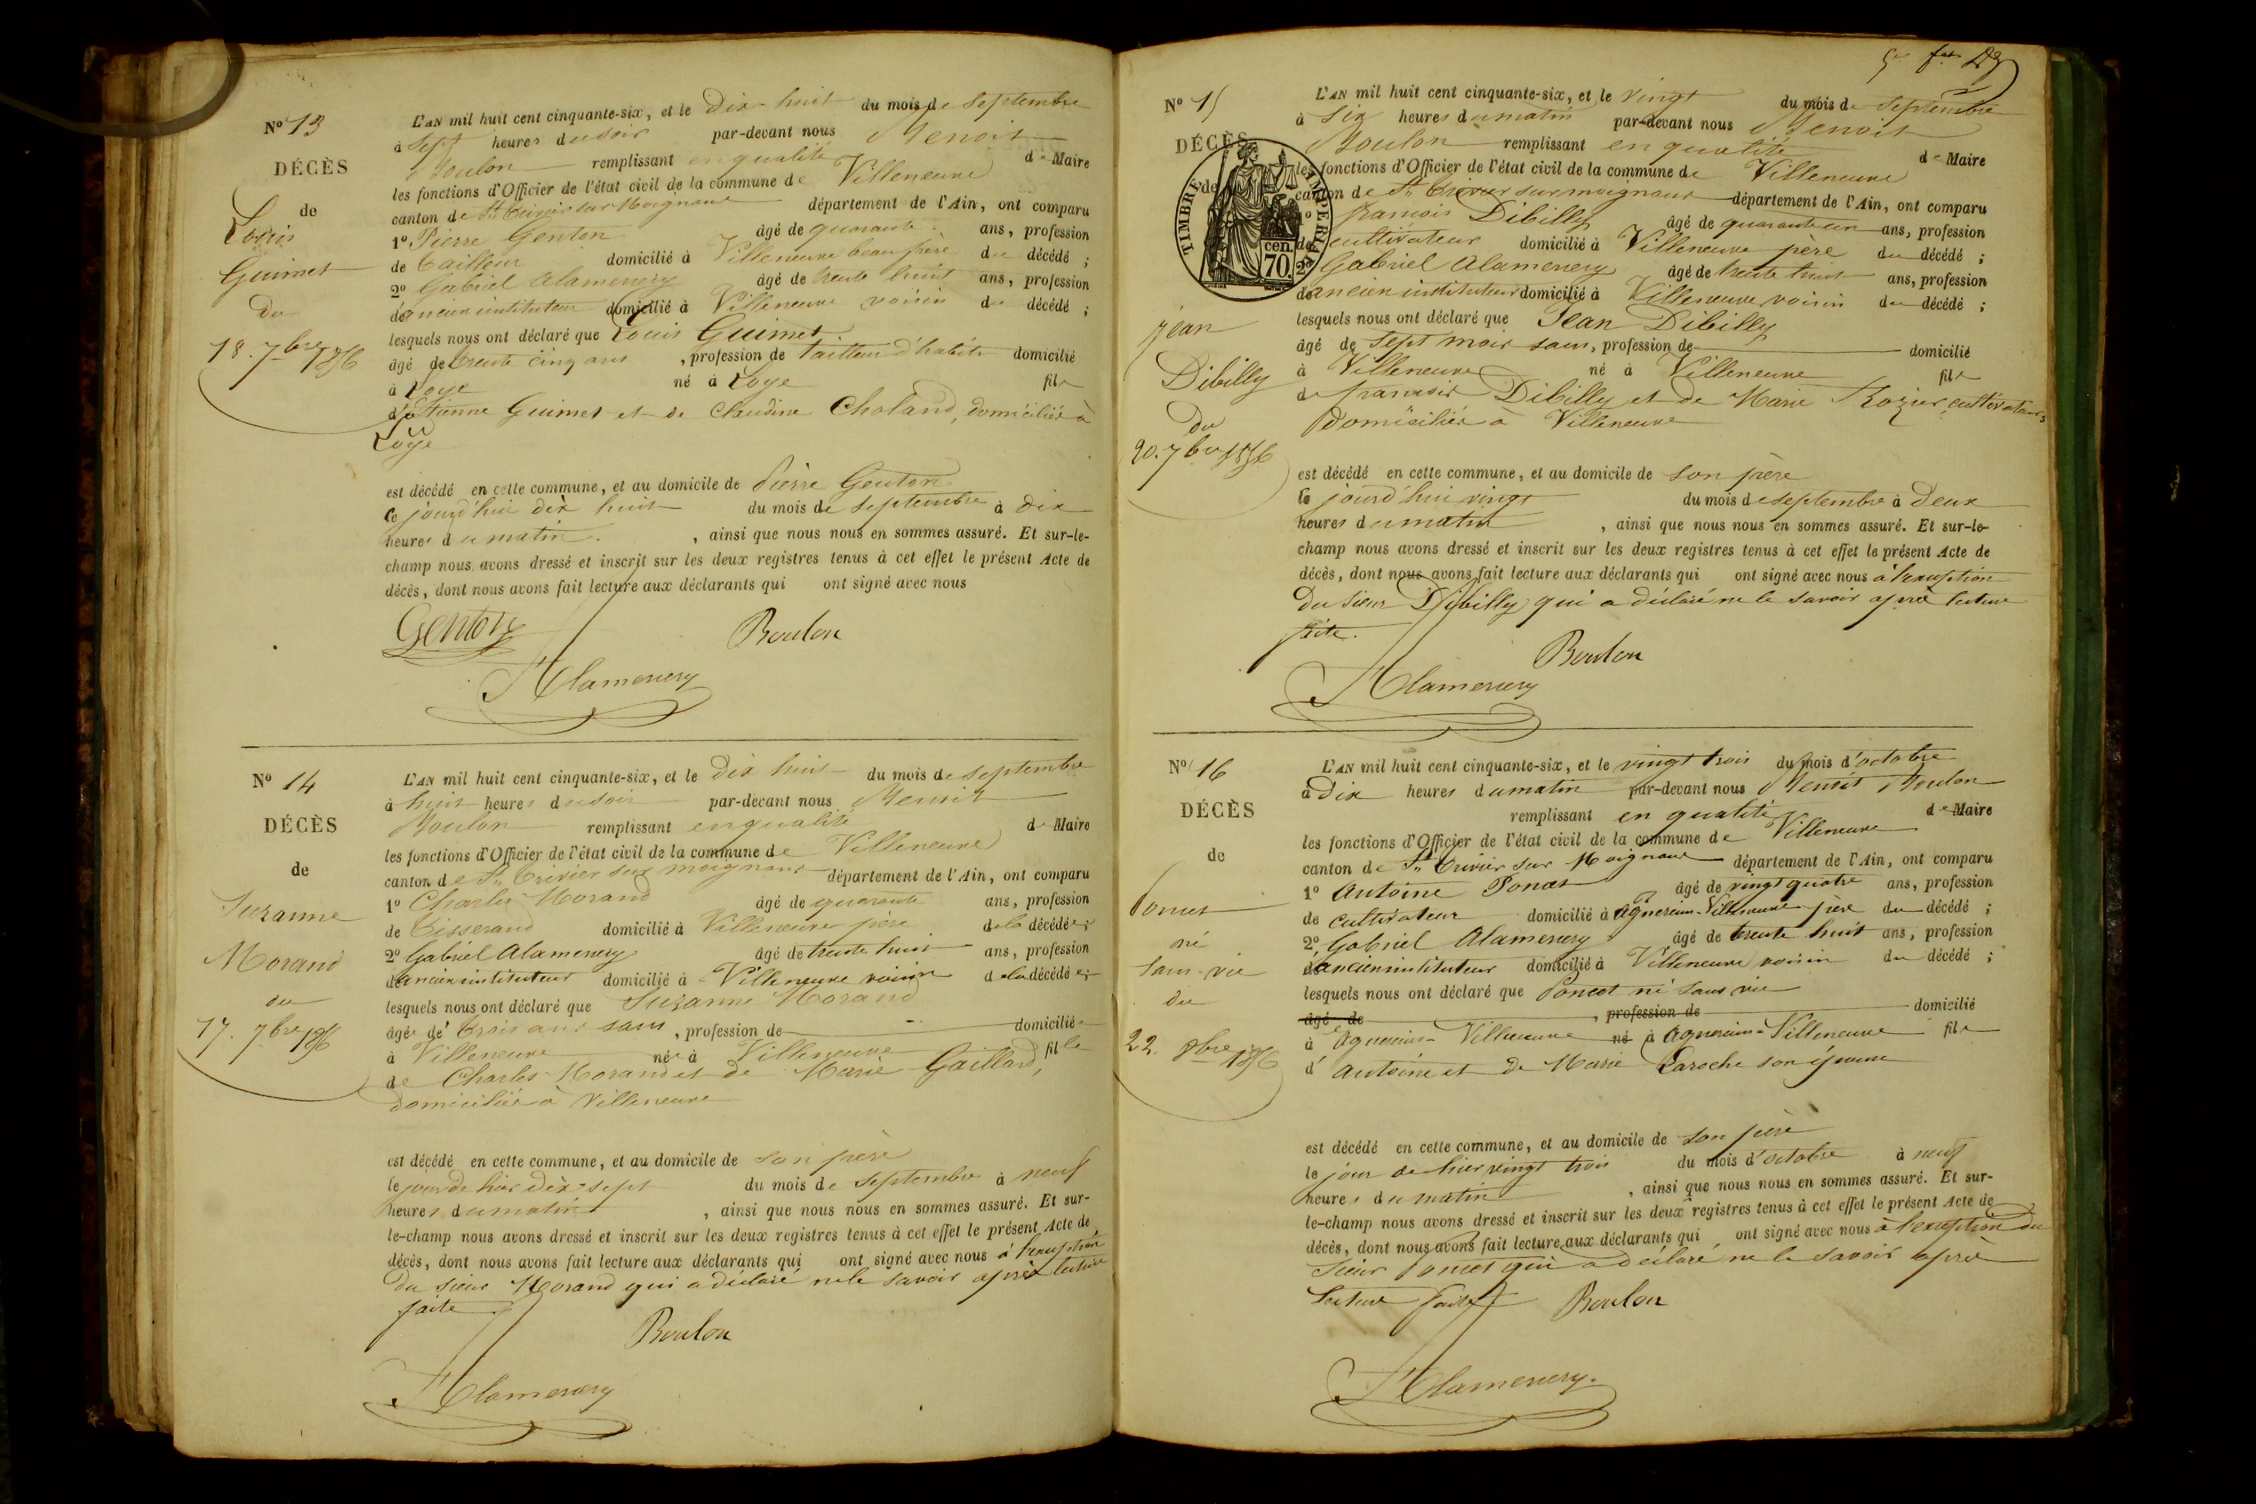 N° 13
DÉCÈS
de
Louis
Guimet
du
18. 7bre 1856
L'AN mil huit cent cinquante-six, et le Dix-huit du mois de septembre
à sept heures du soir par-devant nous Benoit
Boulon remplissant en qualité de Maire
les fonctions d'Officier de l'état civil de la commune de Villeneuve
canton de St Trivier sur Moignans département de l'Ain, ont comparu
1° Pierre Genton âgé de quarante ans, profession
de tailleur domicilié à Villeneuve beau frère du décédé ;
2° Gabriel Alamercery âgé de trente huit ans, profession
d'ancien instituteur domicilié à Villeneuve voisin du décédé ;
lesquels nous ont déclaré que Louis Guimet
âgé de trente cinq ans, profession de tailleur d'habits domicilié
à Loye né à Loye fils
d'Etienne Guimet et de Claudine Choland, domiciliés à
Loye
est décédé en cette commune, et au domicile de Pierre Genton
ce jourd'hui dix huit du mois de septembre à dix
heures du matin. , ainsi que nous nous en sommes assuré. Et sur-le-
champ nous avons dressé et inscrit sur les deux registres tenus à cet effet le présent Acte de
décès, dont nous avons fait lecture aux déclarants qui ont signé avec nous
Genton Boulon
Alamercery
N° 14
DÉCÈS
de
Suzanne
Morand
du
17. 7bre 1856
L'AN mil huit cent cinquante-six, et le dix huit du mois de septembre
à huit heures du soir par-devant nous Benoit
Boulon remplissant en qualité de Maire
les fonctions d'Officier de l'état civil de la commune de Villeneuve
canton de St Trivier sur moignans département de l'Ain, ont comparu
1° Charles Morand âgé de quarante ans, profession
de Tisserand domicilié à Villeneuve père de la décédée ;
2° Gabriel Alamercery âgé de trente huit ans, profession
d'ancien instituteur domicilié à Villeneuve voisin de la décédée ;
lesquels nous ont déclaré que Suzanne Morand
âgée de trois ans sans, profession de domiciliée
à Villeneuve née à Villeneuve fille
de Charles Morand et de Marie Gaillard,
domiciliés à Villeneuve
est décédé en cette commune, et au domicile de son père
le jour de hier dix-sept du mois de septembre à neuf
heures du matin , ainsi que nous nous en sommes assuré. Et sur-
le-champ nous avons dressé et inscrit sur les deux registres tenus à cet effet le présent Acte de
décès, dont nous avons fait lecture aux déclarants qui ont signé avec nous à l'exception
du sieur Morand qui a déclaré ne le savoir après lecture
faite
Boulon
Alamercery
N° 15
DÉCÈS
de
TIMBRE IMPERIAL
70 cen.
Jean
Dibilly
Du
20. 7bre 1856
L'AN mil huit cent cinquante-six, et le vingt du mois de septembre
à six heures du matin par-devant nous Benoit
Boulon remplissant en qualité de Maire
les fonctions d'Officier de l'état civil de la commune de Villeneuve
canton de St Trivier sur moignans département de l'Ain, ont comparu
1° françois Dibilly âgé de quarante un ans, profession
de cultivateur domicilié à Villeneuve père du décédé ;
2° Gabriel Alamercery âgé de trente huit ans, profession
d'ancien instituteur domicilié à Villeneuve voisin du décédé ;
lesquels nous ont déclaré que Jean Dibilly
âgé de sept mois sans, profession de domicilié
à Villeneuve né à Villeneuve fils
de françois Dibilly et de Marie Rozier, cultivateurs
domiciliés à Villeneuve
est décédé en cette commune, et au domicile de son père
ce jourd'hui vingt du mois de septembre à Deux
heures du matin , ainsi que nous nous en sommes assuré. Et sur-le-
champ nous avons dressé et inscrit sur les deux registres tenus à cet effet le présent Acte de
décès, dont nous avons fait lecture aux déclarants qui ont signé avec nous à l'exception
Du sieur Dibilly qui a déclaré ne le savoir après lecture
faite.
Boulon
Alamercery
N° 16
DÉCÈS
de
Poncet
né
sans-vie
du
22. 8bre 1856
L'AN mil huit cent cinquante-six, et le vingt trois du mois d'octobre
à Dix heures du matin par-devant nous Benoit Boulon
remplissant en qualité de Maire
les fonctions d'Officier de l'état civil de la commune de Villeneuve
canton de St Trivier sur Moignans département de l'Ain, ont comparu
1° Antoine Poncet âgé de vingt quatre ans, profession
de cultivateur domicilié à Agnereins-Villeneuve père du décédé ;
2° Gabriel Alamercery âgé de trente huit ans, profession
d'ancien instituteur domicilié à Villeneuve voisin du décédé ;
lesquels nous ont déclaré que Poncet né sans vie
âgé de , profession de domicilié
à Agnereins-Villeneuve né à Agnereins-Villeneuve fils
d'Antoine et de Marie Laroche son épouse
est décédé en cette commune, et au domicile de son père
le jour de hier vingt trois du mois d'octobre à neuf
heures du matin , ainsi que nous nous en sommes assuré. Et sur-
le-champ nous avons dressé et inscrit sur les deux registres tenus à cet effet le présent Acte de
décès, dont nous avons fait lecture aux déclarants qui ont signé avec nous à l'exception du
sieur Poncet qui a déclaré ne le savoir après
lecture faite Boulon
Alamercery.